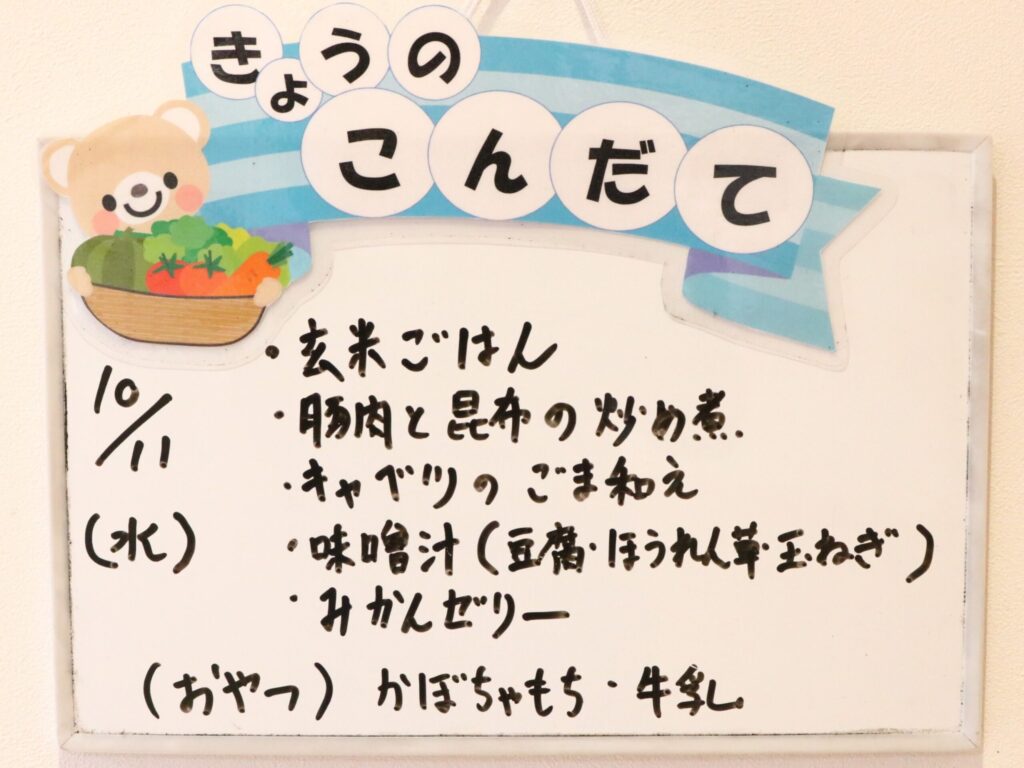 きょうの
こんだて
10/11
(水)
・玄米ごはん
・豚肉と昆布の炒め煮.
・キャベツのごま和え
・味噌汁(豆腐・ほうれん草・玉ねぎ)
・みかんゼリー
(おやつ) かぼちゃもち・牛乳